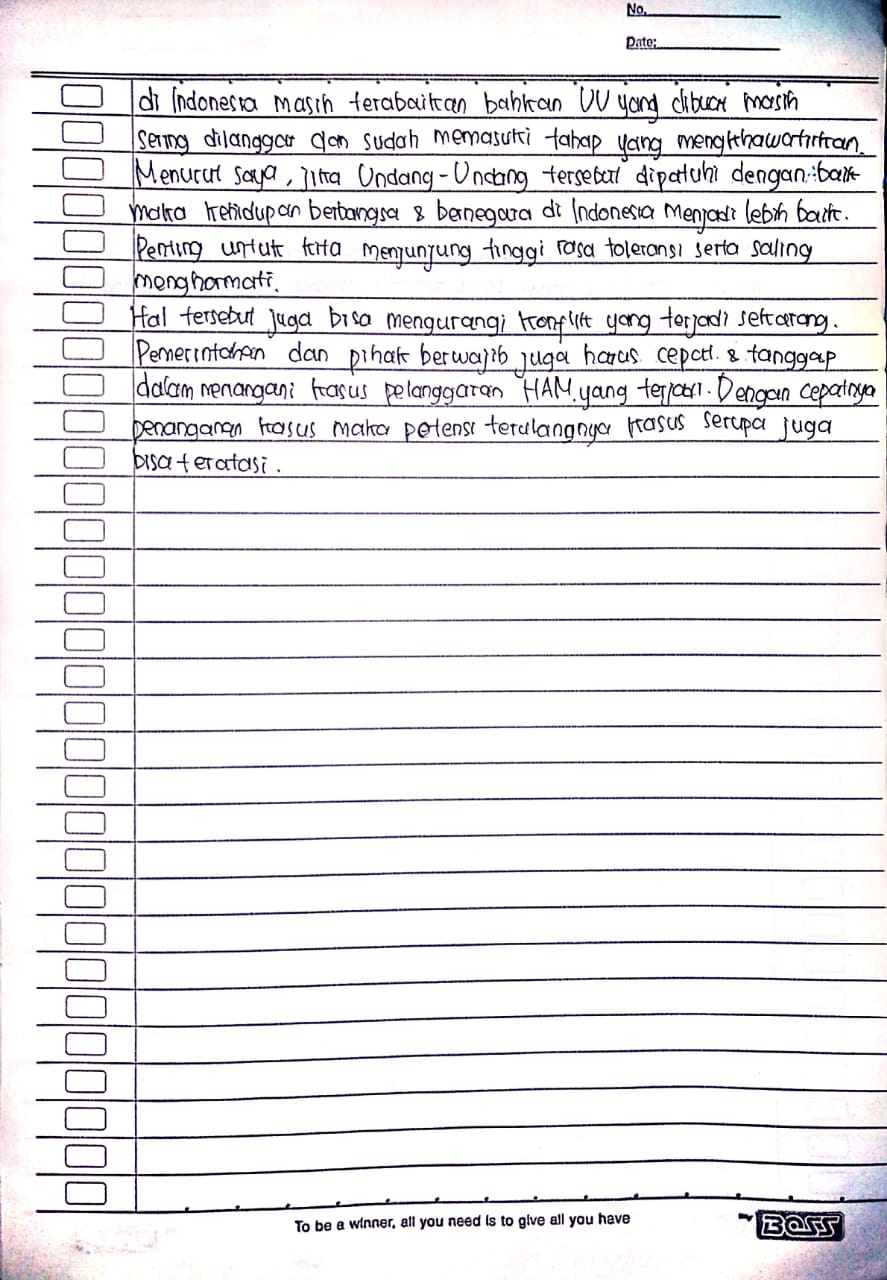 No.
Date:
di Indonesia masih terabaikan bahkan UU yang dibuat masih
sering dilanggar dan sudah memasuki tahap yang mengkhawatirkan.
Menurut saya, jika Undang-Undang tersebut dipatuhi dengan baik
maka kehidupan berbangsa & bernegara di Indonesia Menjadi lebih baik.
Penting untuk kita menjunjung tinggi rasa toleransi serta saling
menghormati.
Hal tersebut juga bisa mengurangi konflik yang terjadi sekarang.
Pemerintahan dan pihak berwajib juga harus cepat & tanggap
dalam menangani kasus pelanggaran HAM yang terjadi. Dengan cepatnya
penanganan kasus maka potensi terulangnya kasus serupa juga
bisa teratasi.
To be a winner, all you need is to give all you have
BOSS